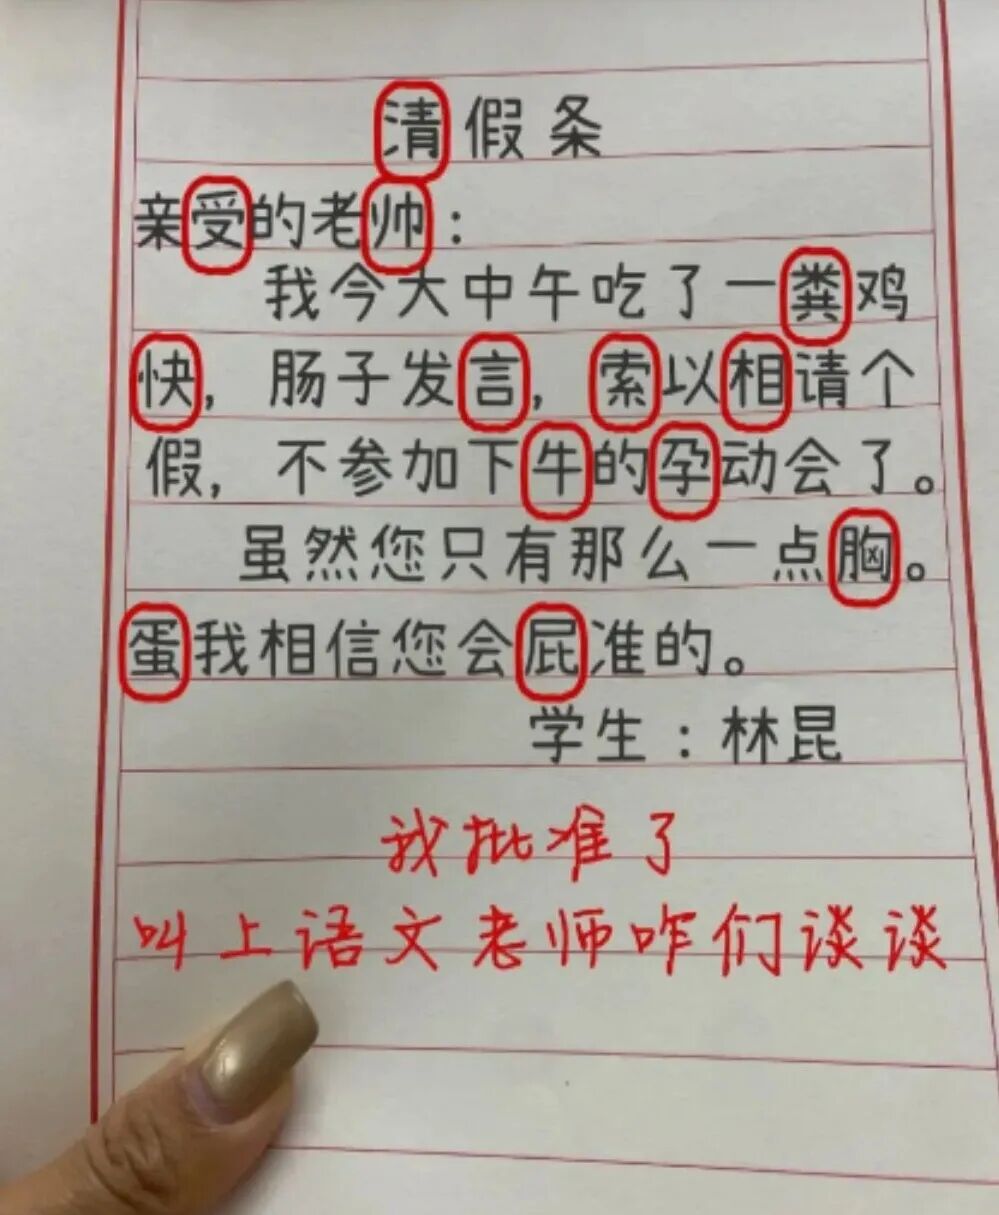 清假条
亲受的老帅：
我今大中午吃了一粪鸡
快，肠子发言，索以相请个
假，不参加下牛的孕动会了。
虽然您只有那么一点胸。
蛋我相信您会屁准的。
学生：林昆
我批准了
叫上语文老师咋们谈谈